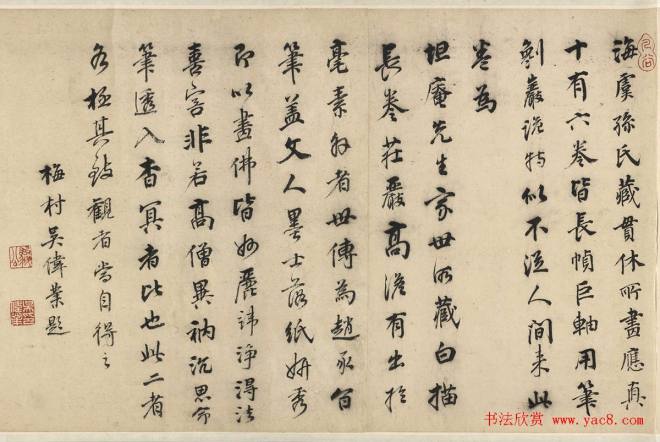 海虞孫氏藏貫休所畫應真
十有六卷皆長幀巨軸用筆
劖巖詭特似不從人間來此
卷為
坦庵先生家世所藏白描
長卷莊嚴高澹有出於
毫素外者世傳為趙承旨
筆蓋文人墨士落紙妍秀
即以畫佛皆妙麗諱淨得法
喜容非若高僧異衲沉思命
筆透入杳冥者比也此二者
各極其致觀者當自得之
梅村吳偉業題
书法欣赏 www.yac8.com